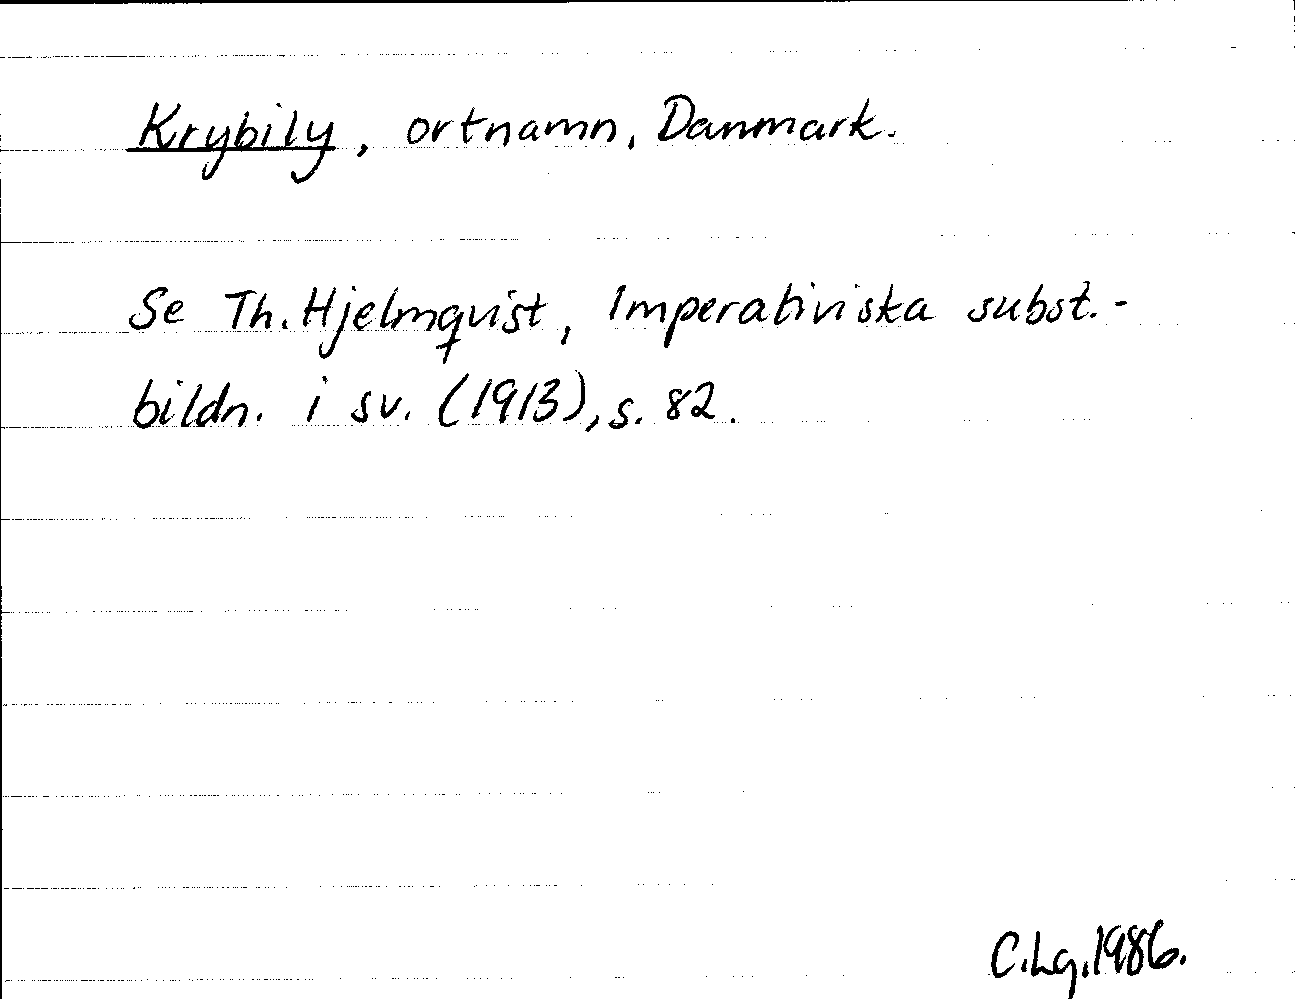 Krybily, ortnamn, Danmark.
Se Th. Hjelmqvist, Imperativiska subst.-
bildn. i sv. (1913), s. 82.
C.Lg.1986.